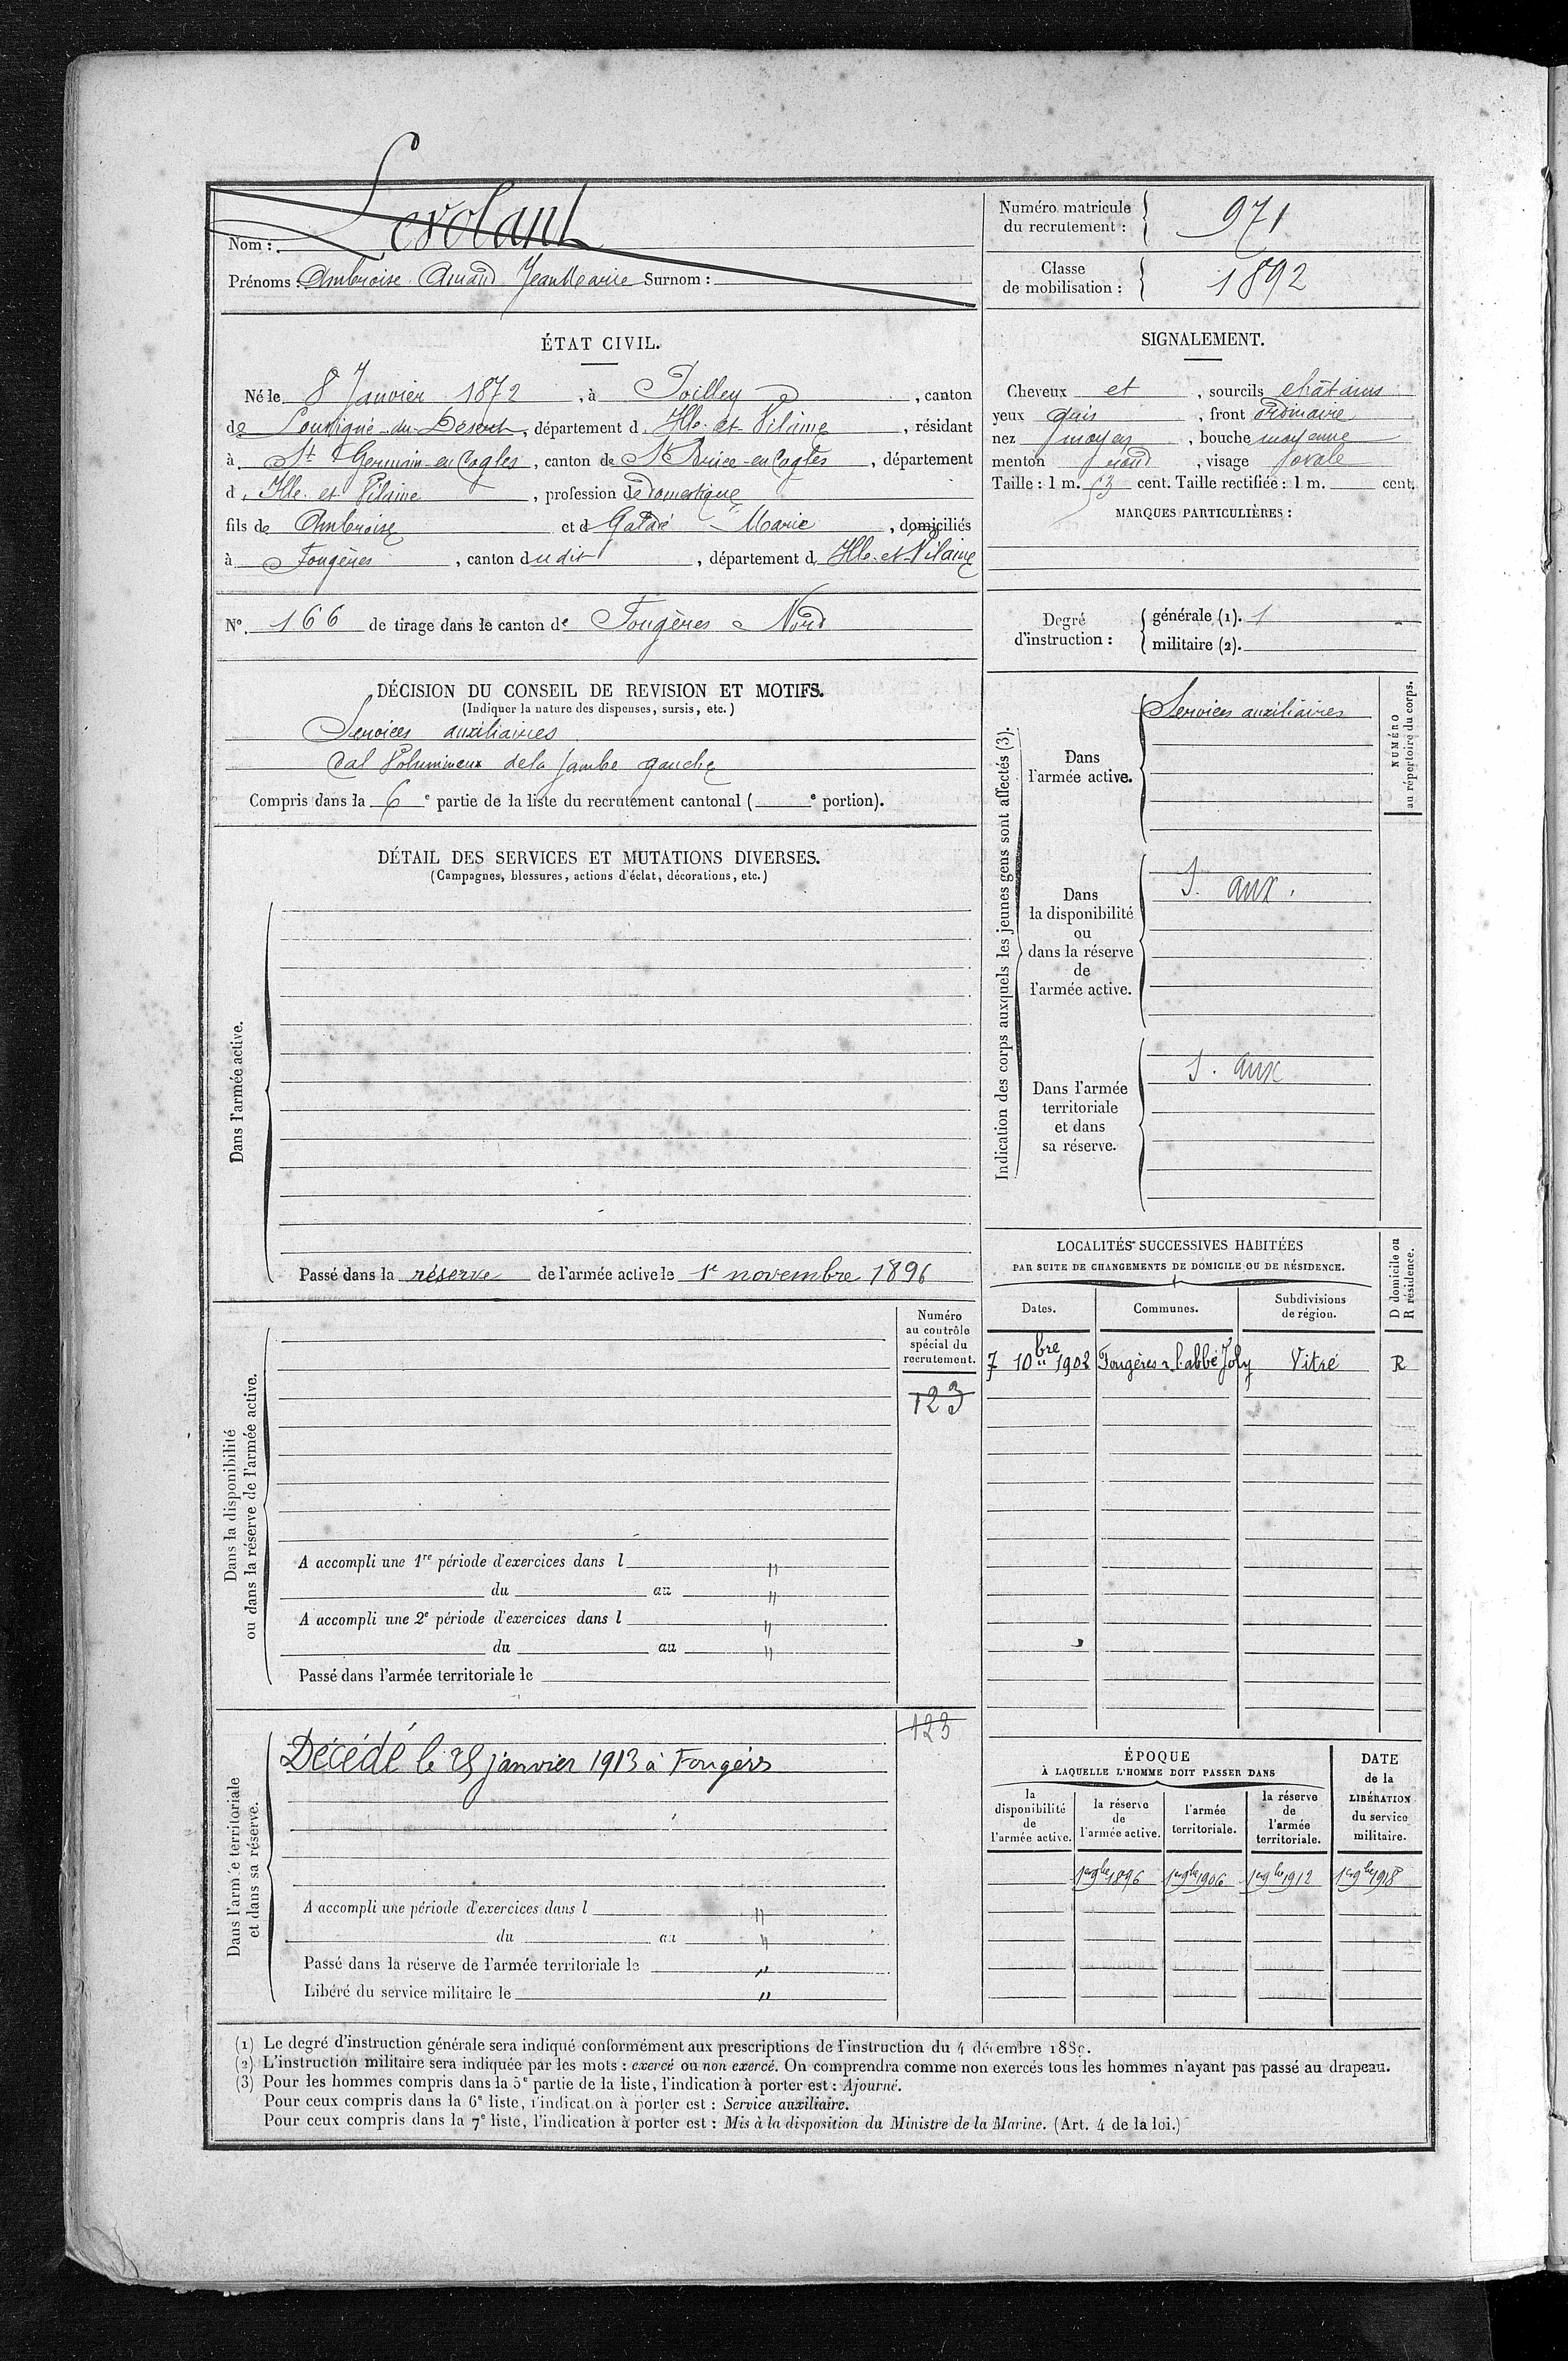 Nom : Levolant
Prénoms : Ambroise Amand Jean Marie Surnom :
Numéro matricule du recrutement : 971
Classe de mobilisation : 1892
ÉTAT CIVIL.
Né le 8 Janvier 1872, à Poilley, canton
de Louvigné-du-Désert, département d Ille-et-Vilaine, résidant
à St Germain-en-Cogles, canton de St Brice-en-Cogles, département
d Ille et Vilaine, profession de domestique
fils de Ambroise et d Marie, domiciliés
à Fougères, canton dudit, département d Ille-et-Vilaine
N° 166 de tirage dans le canton de Fougères Nord
SIGNALEMENT.
Cheveux et, sourcils châtains
yeux gris, front ordinaire
nez moyen, bouche moyenne
menton rond, visage ovale
Taille : 1 m. 53 cent. Taille rectifiée : 1 m. cent.
MARQUES PARTICULIÈRES :
Degré d'instruction :
générale (1). 1
militaire (2).
DÉCISION DU CONSEIL DE REVISION ET MOTIFS.
(Indiquer la nature des dispenses, sursis, etc.)
Services auxiliaires
Cal Volumineux de la jambe gauche
Compris dans la 6e partie de la liste du recrutement cantonal ( e portion).
DÉTAIL DES SERVICES ET MUTATIONS DIVERSES.
(Campagnes, blessures, actions d'éclat, décorations, etc.)
Dans l'armée active.
Passé dans la réserve de l'armée active le 1e novembre 1896
Indication des corps auxquels les jeunes gens sont affectés (3).
NUMÉRO
au répertoire du corps.
Dans
l'armée active.
Services auxiliaires
Dans
la disponibilité
ou
dans la réserve
de
l'armée active.
S. aux.
Dans l'armée
territoriale
et dans
sa réserve.
S. aux
Dans la disponibilité
ou dans la réserve de l'armée active.
Numéro
au contrôle
spécial du
recrutement.
123
A accompli une 1re période d'exercices dans l "
du au "
A accompli une 2e période d'exercices dans l "
du au "
Passé dans l'armée territoriale le
LOCALITÉS SUCCESSIVES HABITÉES
PAR SUITE DE CHANGEMENTS DE DOMICILE OU DE RÉSIDENCE.
D domicile ou
R résidence.
Dates.
Communes.
Subdivisions
de région.
7 10bre 1902 Fougères r. l'abbé Joly Vitré R
Dans l'armée territoriale
et dans sa réserve.
123
Décédé le 28 janvier 1913 à Fougères
A accompli une période d'exercices dans l "
du au "
Passé dans la réserve de l'armée territoriale le "
Libéré du service militaire le "
ÉPOQUE
À LAQUELLE L'HOMME DOIT PASSER DANS
la
disponibilité
de
l'armée active.
la réserve
de
l'armée active.
l'armée
territoriale.
la réserve
de
l'armée
territoriale.
DATE
de la
LIBÉRATION
du service
militaire.
1er 9bre 1896 1er 9bre 1906 1er 9bre 1912 1er 9bre 1918
(1) Le degré d'instruction générale sera indiqué conformément aux prescriptions de l'instruction du 4 décembre 1889.
(2) L'instruction militaire sera indiquée par les mots : exercé ou non exercé. On comprendra comme non exercés tous les hommes n'ayant pas passé au drapeau.
(3) Pour les hommes compris dans la 5e partie de la liste, l'indication à porter est : Ajourné.
Pour ceux compris dans la 6e liste, l'indication à porter est : Service auxiliaire.
Pour ceux compris dans la 7e liste, l'indication à porter est : Mis à la disposition du Ministre de la Marine. (Art. 4 de la loi.)